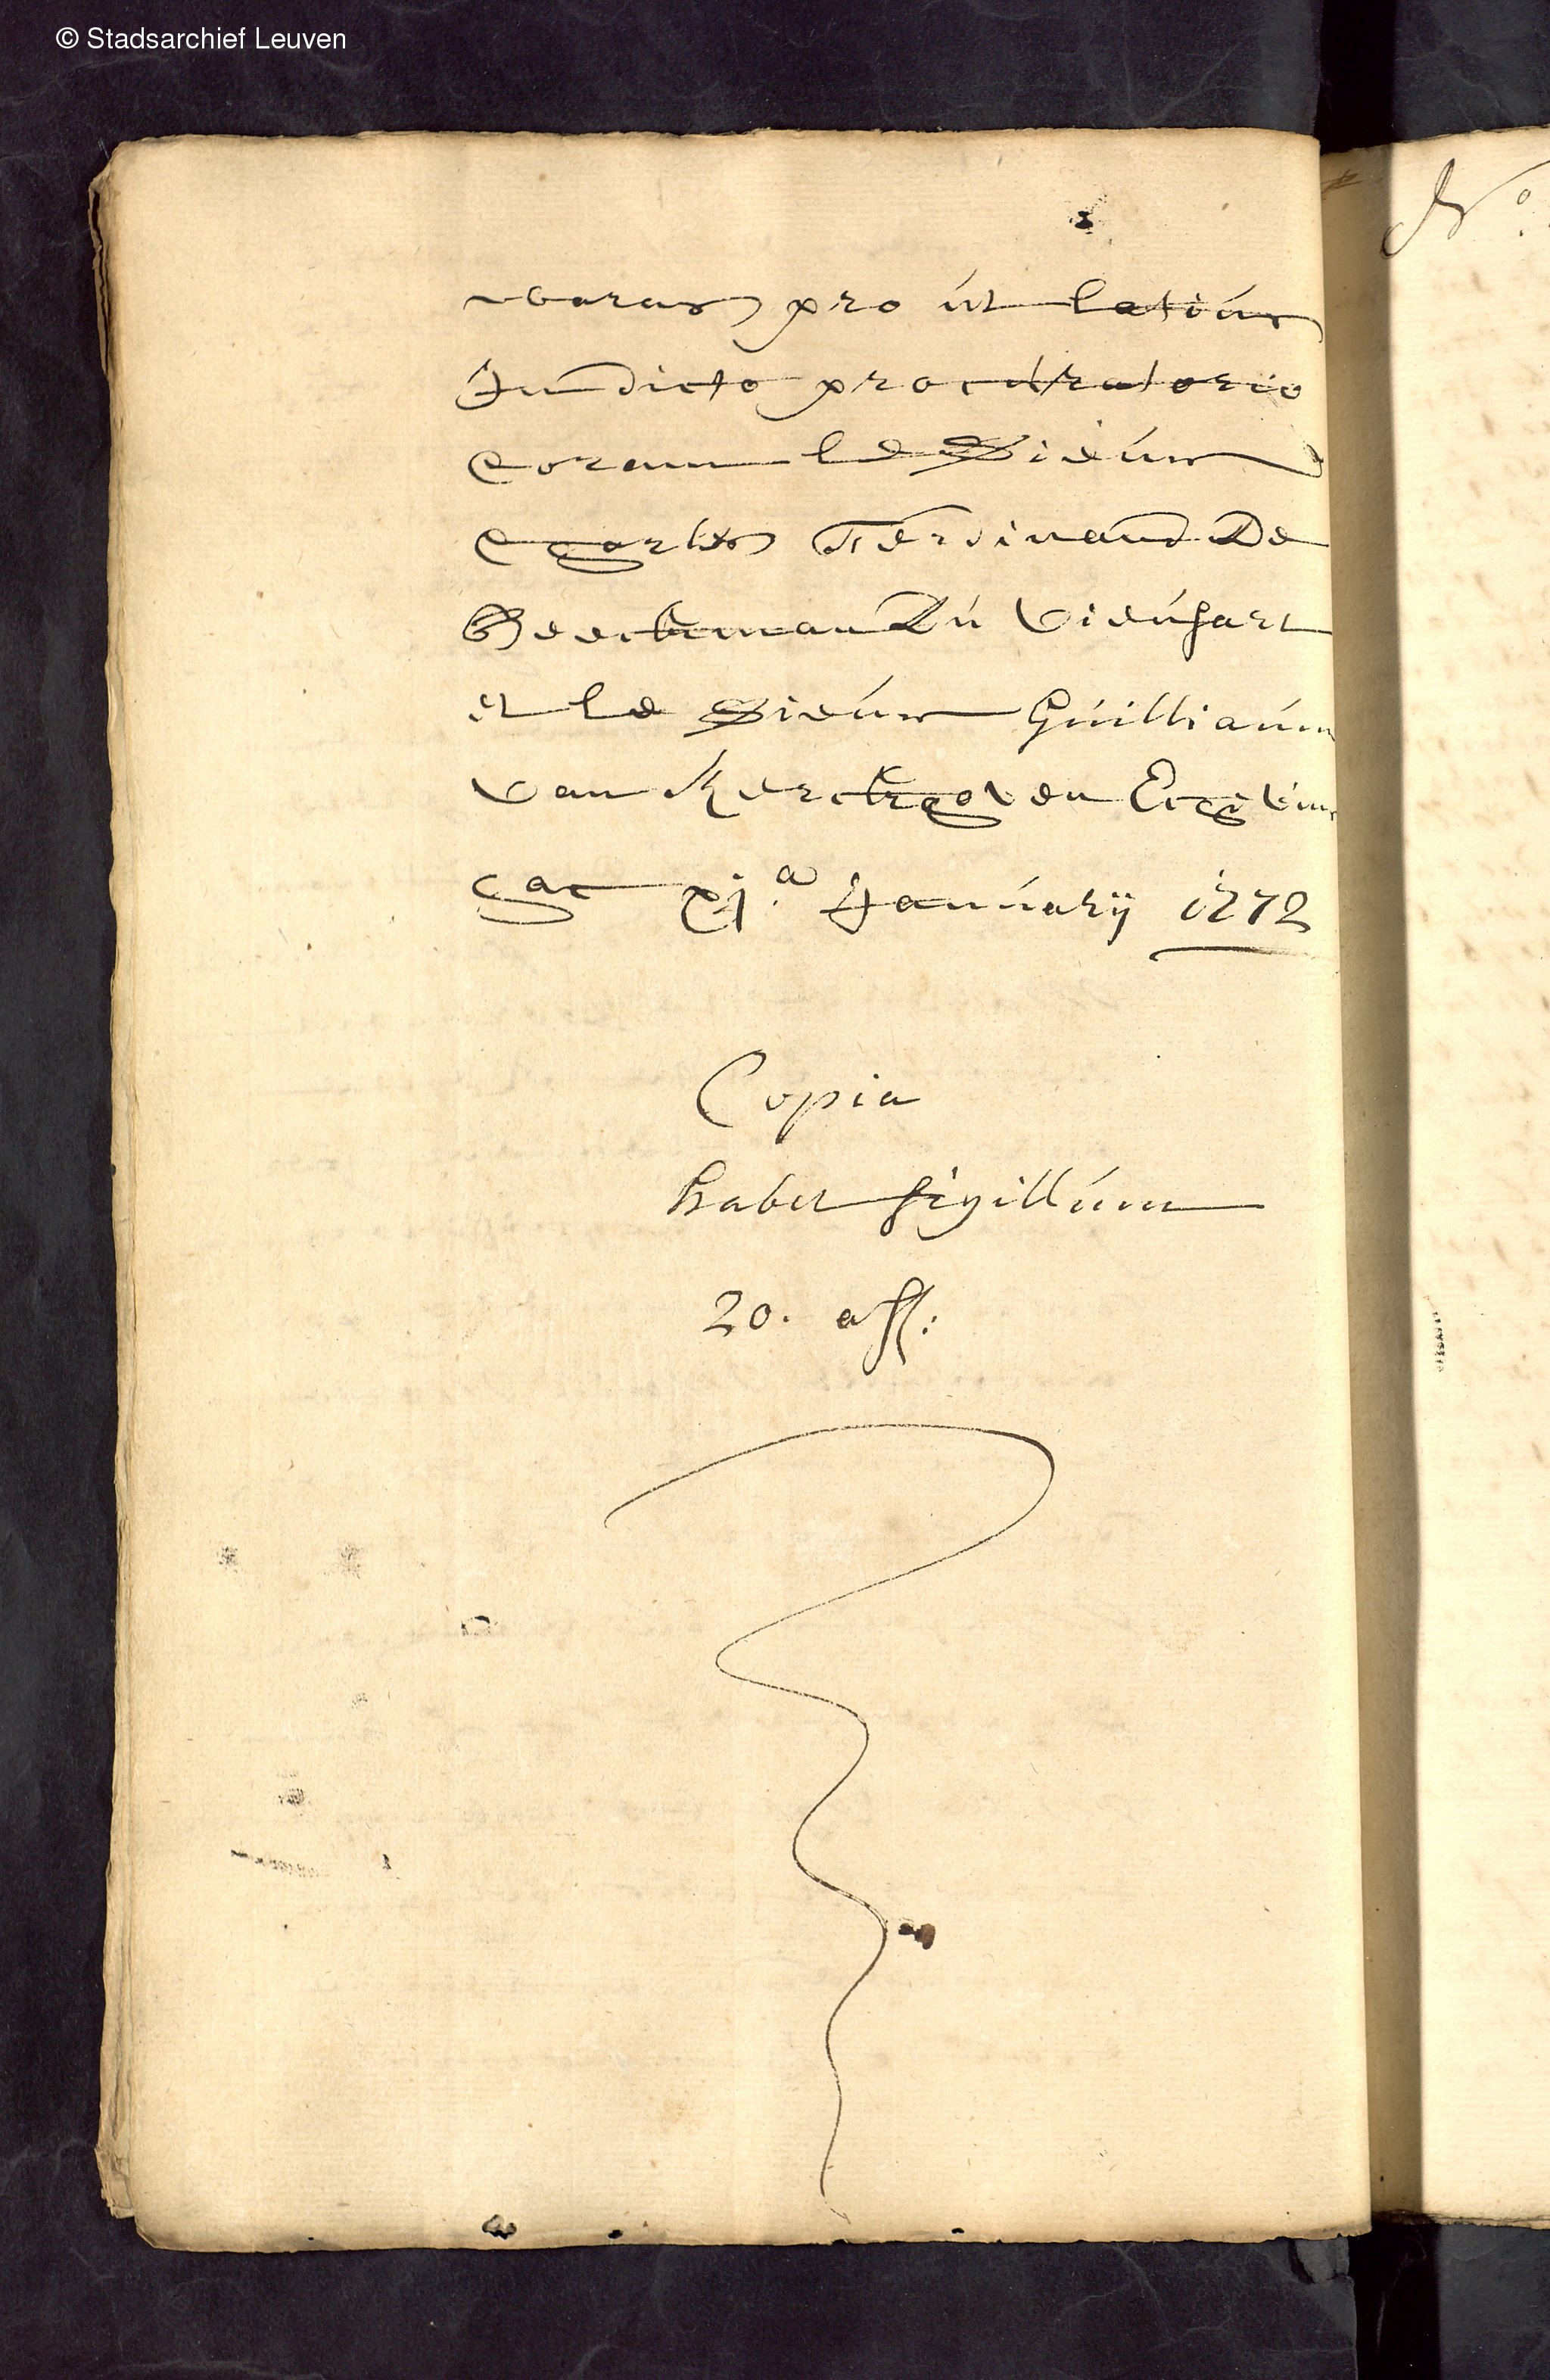 © Stadsarchief Leuven
No.
waren pro út latiús
In dicto procúratorio
Coram le Sieúr
Charles Ferdinand De
Beeckman Dú Vieúsart
et le Sieúr Gúilliaúm
van Kerckhoven
hac xj.a Janúarÿ 1772
Copia
habet sigillúm
20. ass: